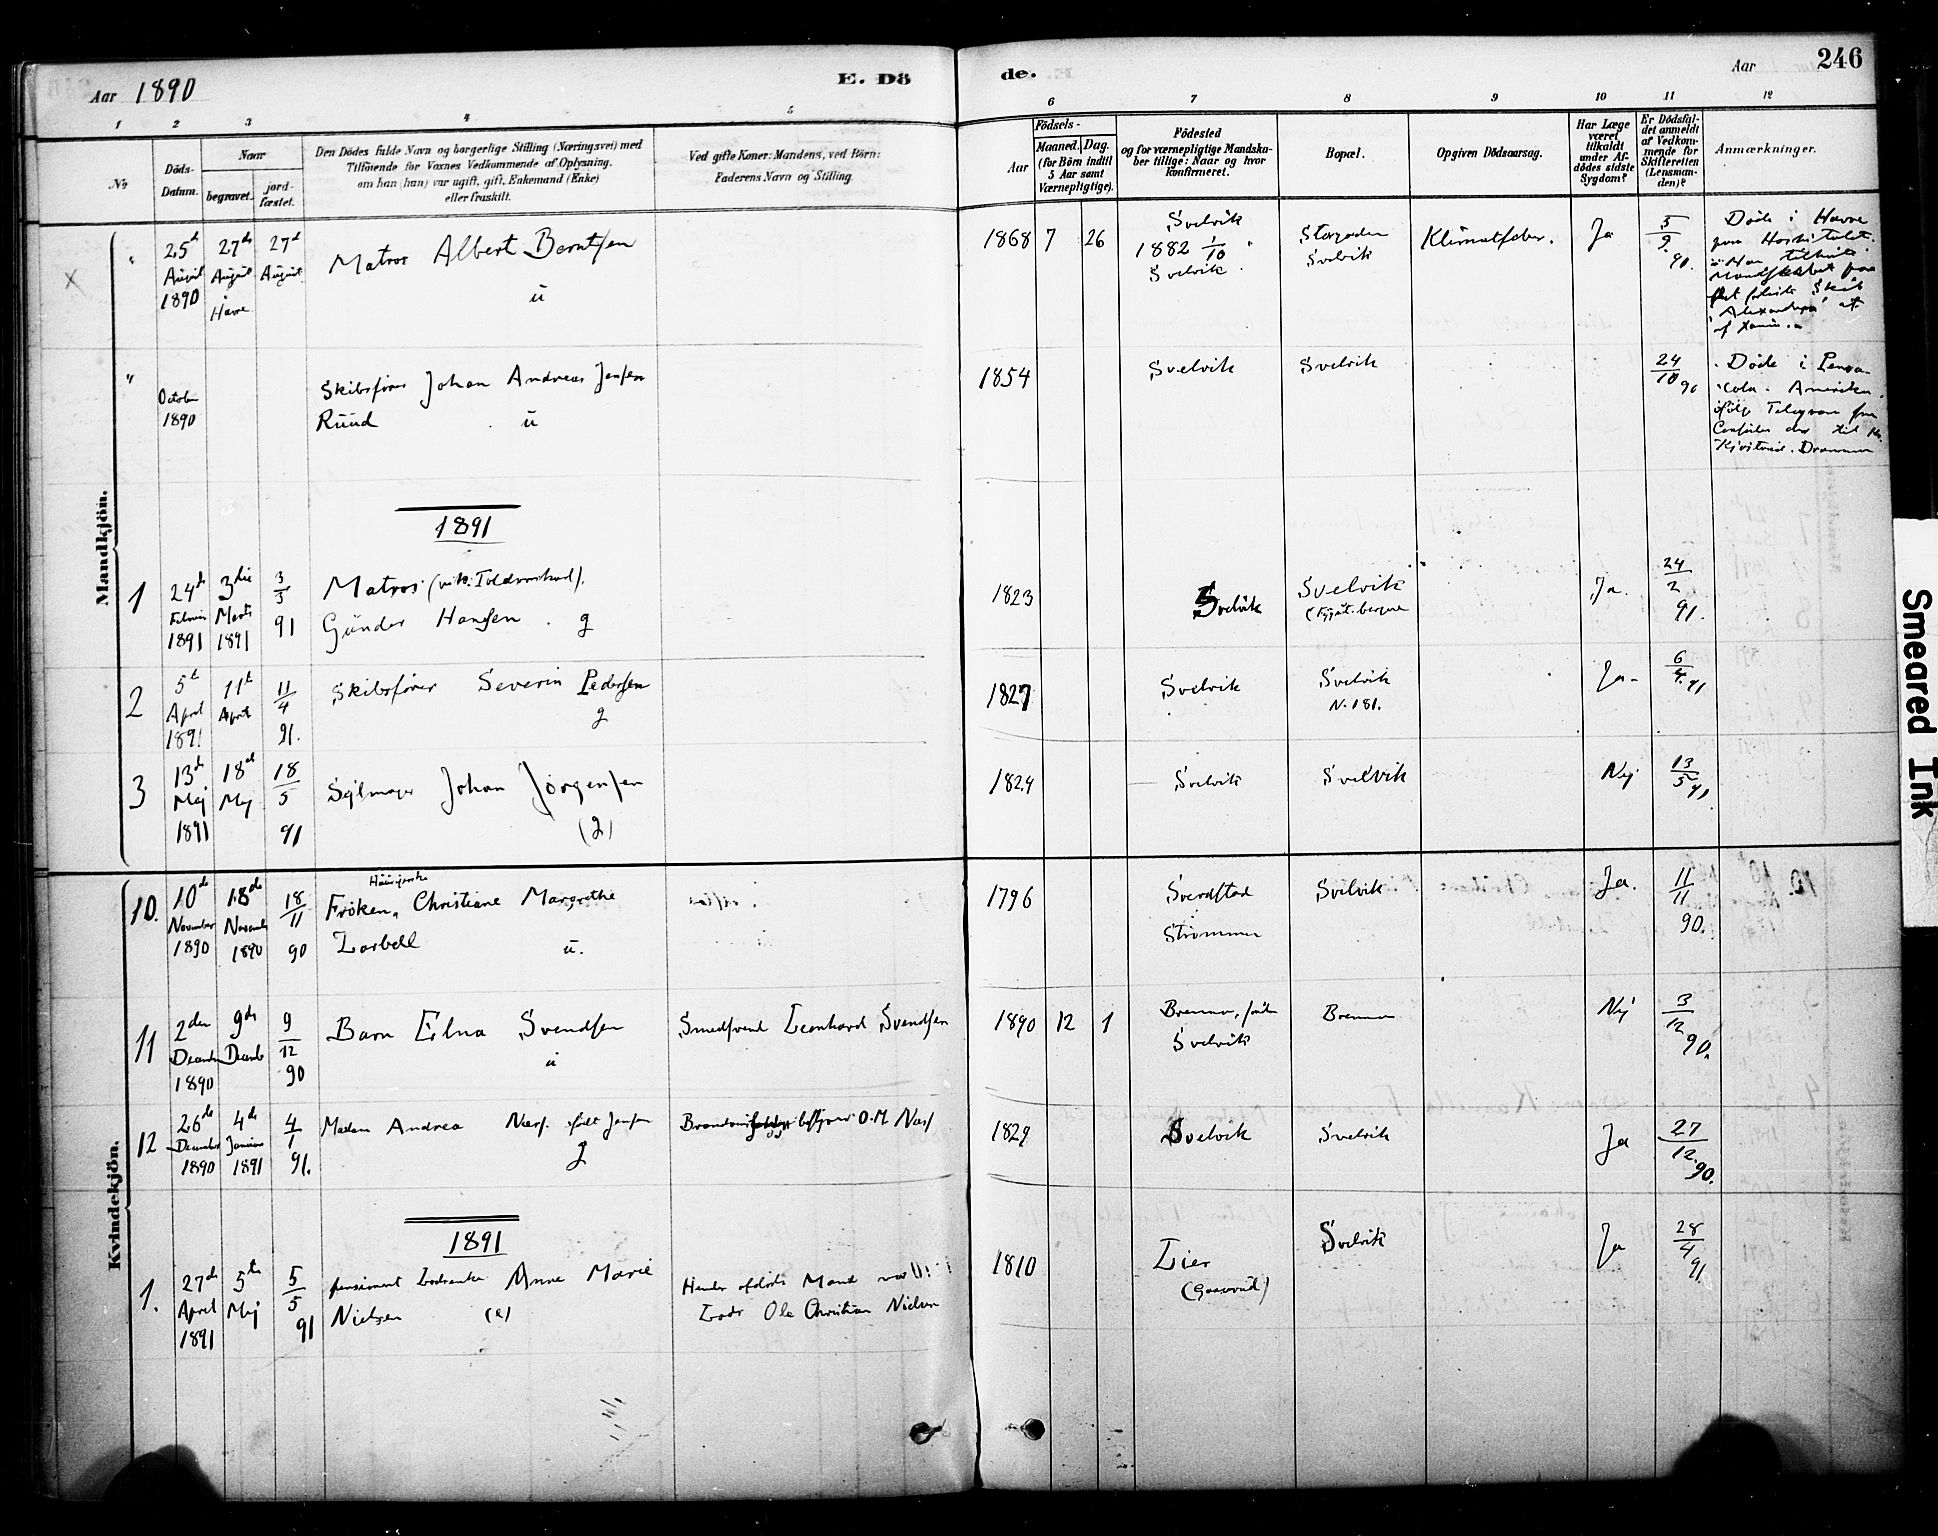 Aar 1890
E. Dö
de.
Aar
246
1 2 3 4 5
6 7 8 9 10 11 12
No
Döds-
Datum.
Naar
begravet.
jord-
fæstet.
Den Dödes fulde Navn og borgerlige Stilling (Næringsvei) med
Tilföiende for Voxnes Vedkommende af Oplysning,
om han (hun) var ugift, gift, Enkemand (Enke)
eller fraskilt.
Ved gifte Koner: Mandens, ved Börn:
Faderens Navn og Stilling.
Födsels-
Aar
Maaned.
Dag.
(for Börn indtil
5 Aar samt
Værnepligtige).
Födested
og for værnepligtige Mandska-
ber tillige: Naar og hvor
konfirmeret.
Bopæl.
Opgiven Dödsaarsag.
Har Læge
været
tilkaldt
under Af-
dödes sidste
Sygdom?
Er Dödsfal-
det anmeldt
af Vedkom-
mende for
Skifteretten
(Lensman-
den)?
Anmærkninger.
Mandkjön.
X
" 25d August 1890
27de August Havre
27d August
Matros Albert Berntsen
u
1868 7 26
Svelvik
1882 1/10
Svelvik
Svelvik
Klimatfeber.
Ja
3/9 90.
Døde i Havre
paa Hospitalet.
Han tilhørte
Mandskabet paa
Skib
"
October
1890
Skibsfører Johan Andreas Jensen
Ruud u
1854
Svelvik
Svelvik
24/10 90
Døde i Pensa-
cola. Amerika,
ifølge Telegram fra
til
Drammen
1891
1
24de
1891
3die Marts 1891
3/3 91
Matros
Gunder Hansen . g
1823
Svelvik
Svelvik
Ja.
24/2 91.
2
5te April 1891
11te April
11/4 91.
Skibsfører Severin Pedersen
g
1827
Svelvik
Svelvik
N. 181.
Ja-
6/4 91
3
13de Maj 1891
18de Maj
18/5 91
Sejlmager Johan Jørgensen
(g)
1824
Svelvik
Svelvik
Nej
13/5 91
Kvindekjön.
10.
10de November 1890
18de November 1890
18/11 90
Frøken, Christiane Margrethe
Zarbell u.
1796
Strømmen
Svelvik
Ja.
11/11 90.
11
2den December 1890
9de December
9/12 90
Barn Elna Svendsen
u
Smedsvend Leonhard Svendsen
1890 12 1
Svelvik
Nej
3/12 90.
12
26de December 1890
4de Januar 1891
4/1 91.
Madam Andrea Næss født Jensen
g
O. M. Næss
1829
Svelvik
Svelvik
Ja
27/12 90.
1891
1.
27de April 1891
5te Maj
5/5 91
Anne Marie
Nielsen (e)
Mand var
Lods Ole Christian Nielsen
1810
Lier
Svelvik
Ja
28/4 91
Smeared Ink